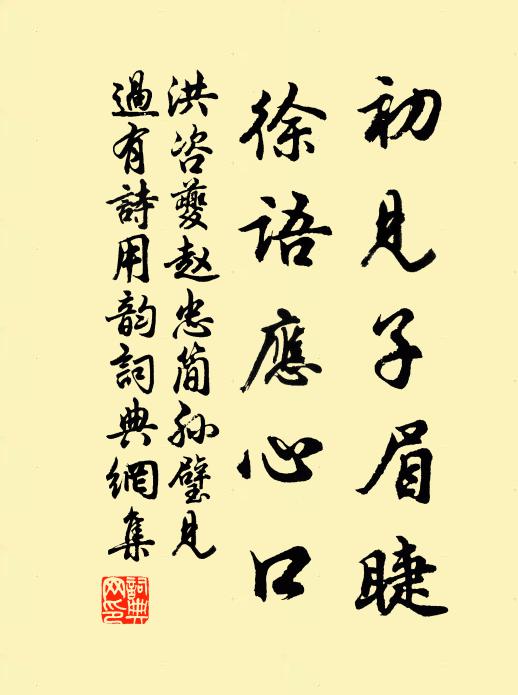 初見子眉睫
徐語應心口
洪咨夔趙忠簡孫璧見
過有詩用韵詞典網集
詞典网印